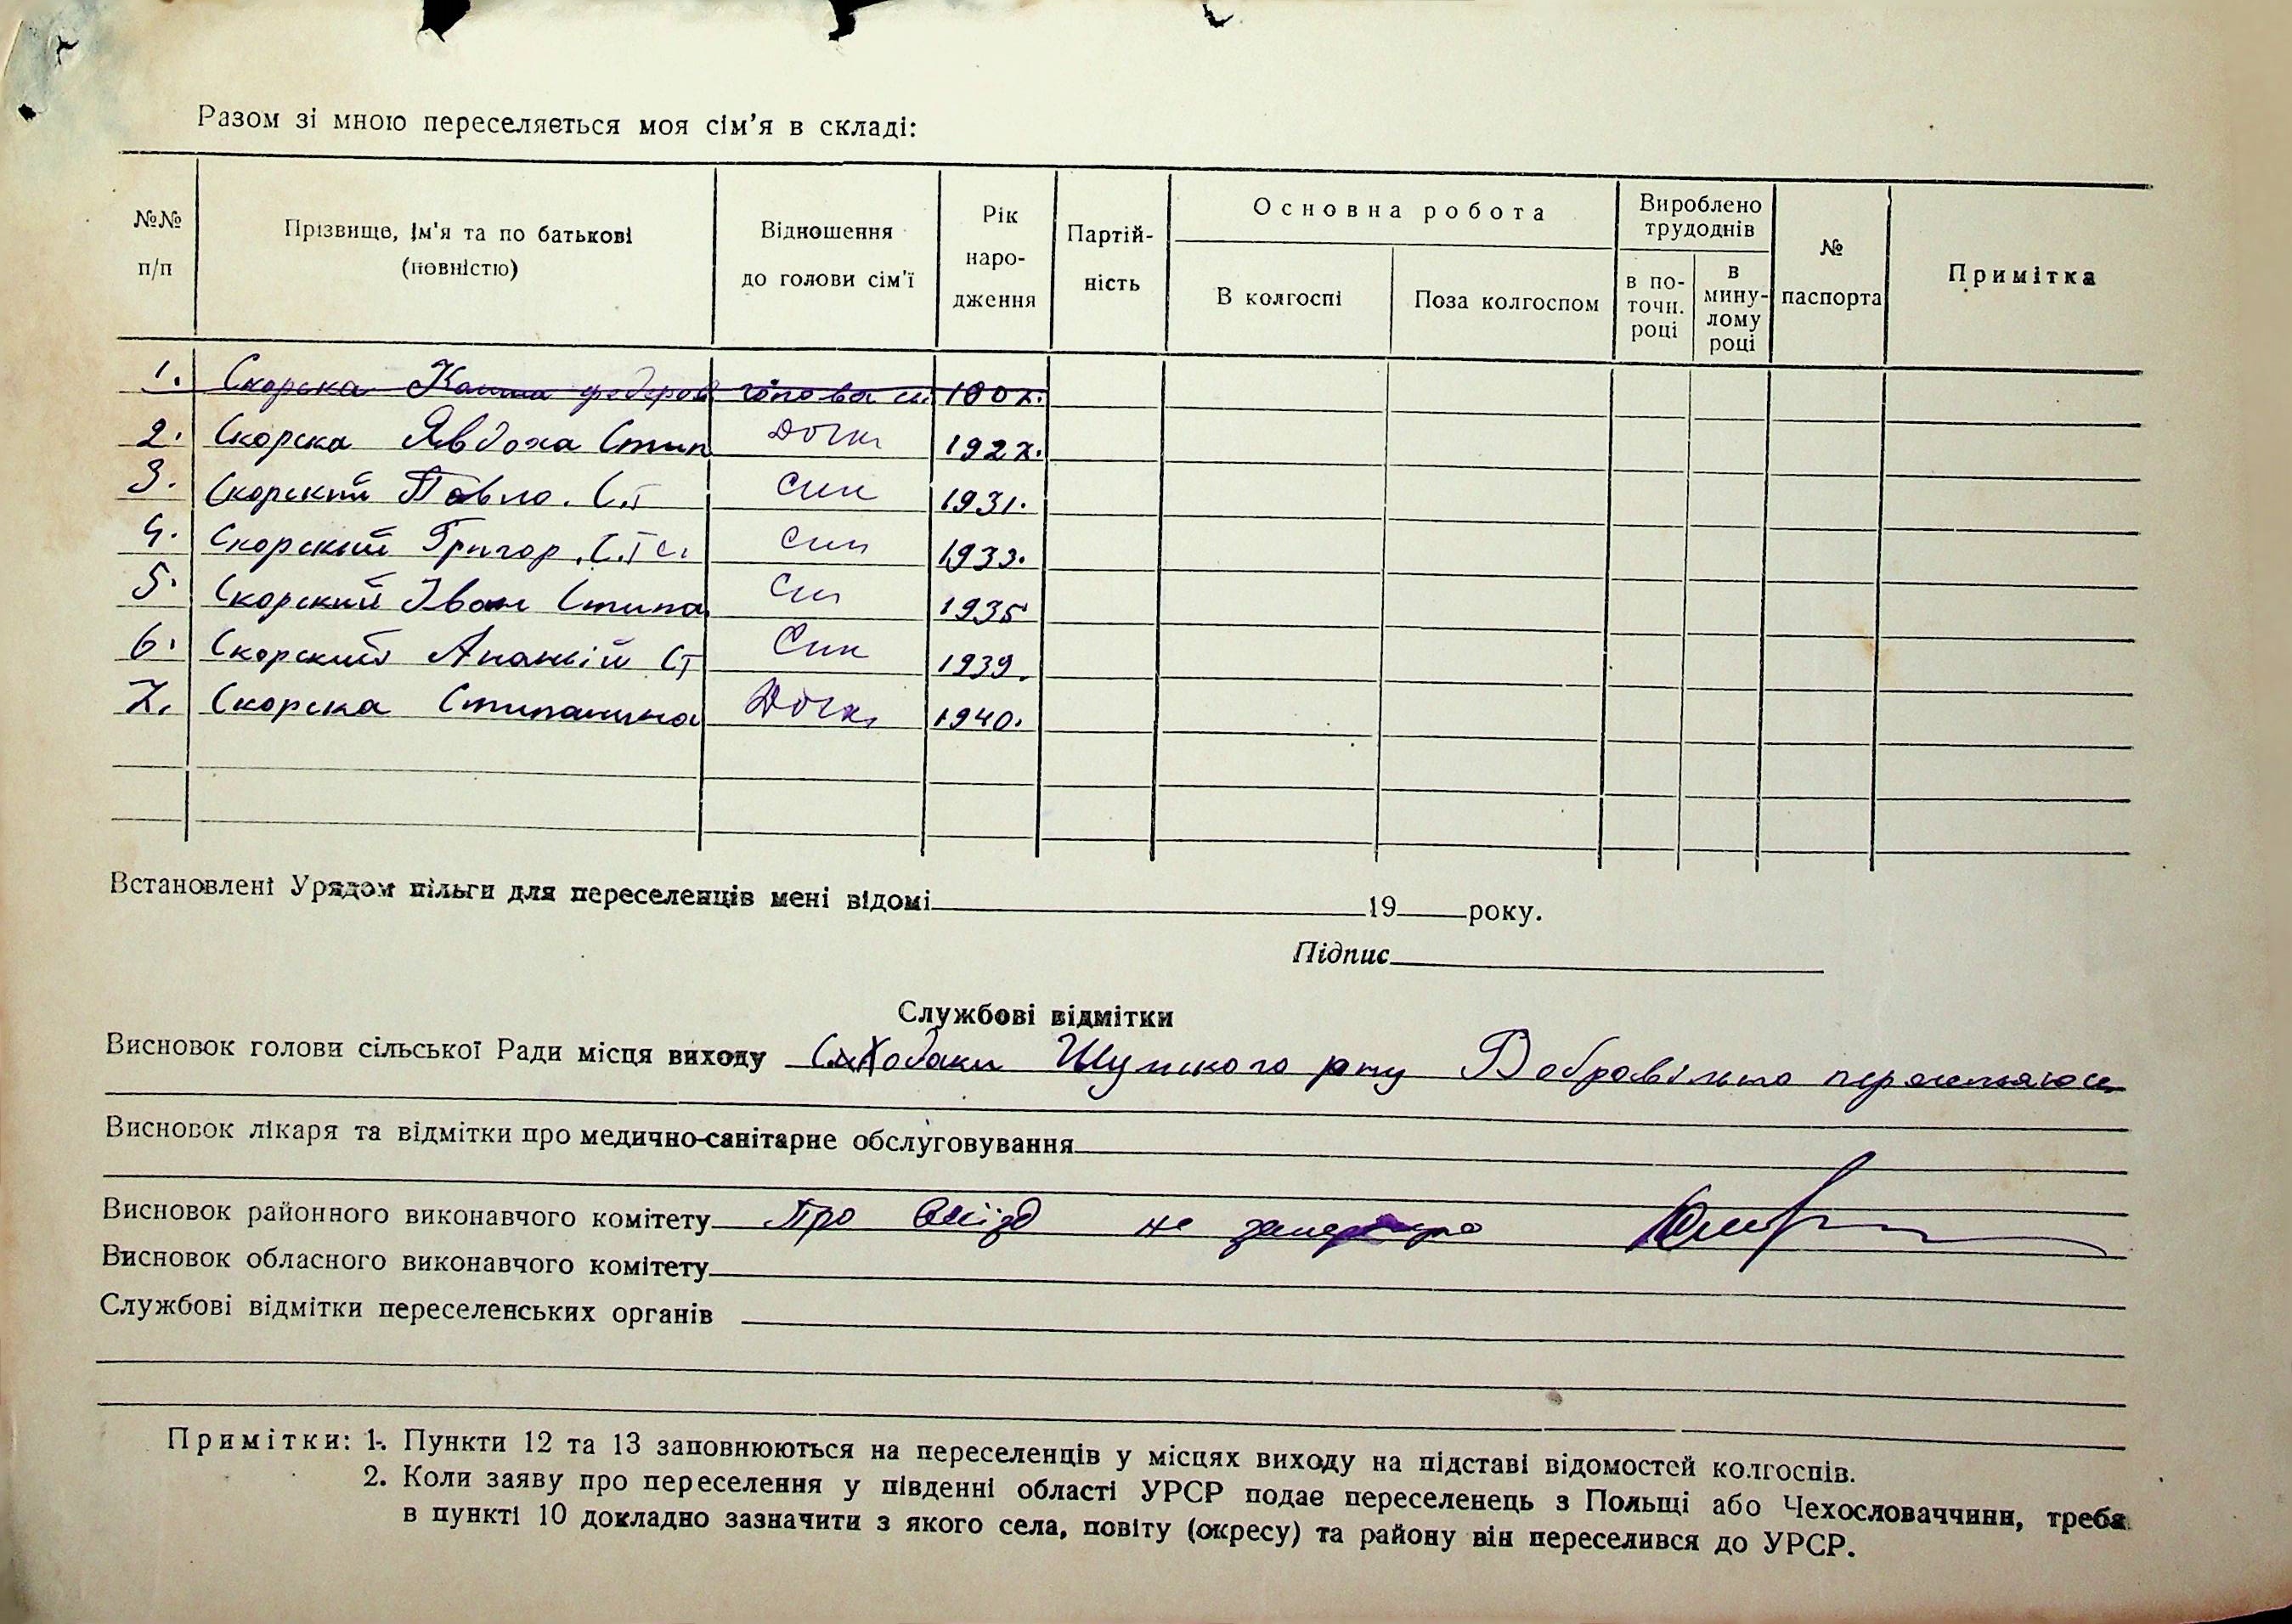 Разом зі мною переселяється моя сім'я в складі:
№№ п/п
Прізвище, ім'я та по батькові (повністю)
Відношення до голови сім'ї
Рік народження
Партійність
Основна робота
В колгоспі
Поза колгоспом
Вироблено трудоднів
в поточн. році
в минулому році
№ паспорта
Примітка
1. Скорска федеров голова
2. Скорска Явдоха Стип Дочк 1927.
3. Скорский Павло. Ст Син 1931.
4. Скорский Григор. Ст Син 1933.
5. Скорский Іван Стипа Син 1935
6. Скорский Ананьій Ст Син 1939.
7. Скорска Стипанина Дочк 1940.
Встановлені Урядом пільги для переселенців мені відомі 19 року.
Підпис
Службові відмітки
Висновок голови сільської Ради місця виходу Шумского р-ну Добровільно
Висновок лікаря та відмітки про медично-санітарне обслуговування
Висновок районного виконавчого комітету Про виїзд не заперечую
Висновок обласного виконавчого комітету
Службові відмітки переселенських органів
Примітки: 1. Пункти 12 та 13 заповнюються на переселенців у місцях виходу на підставі відомостей колгоспів.
2. Коли заяву про переселення у південні області УРСР подає переселенець з Польщі або Чехословаччини, треба
в пункті 10 докладно зазначити з якого села, повіту (окресу) та району він переселився до УРСР.